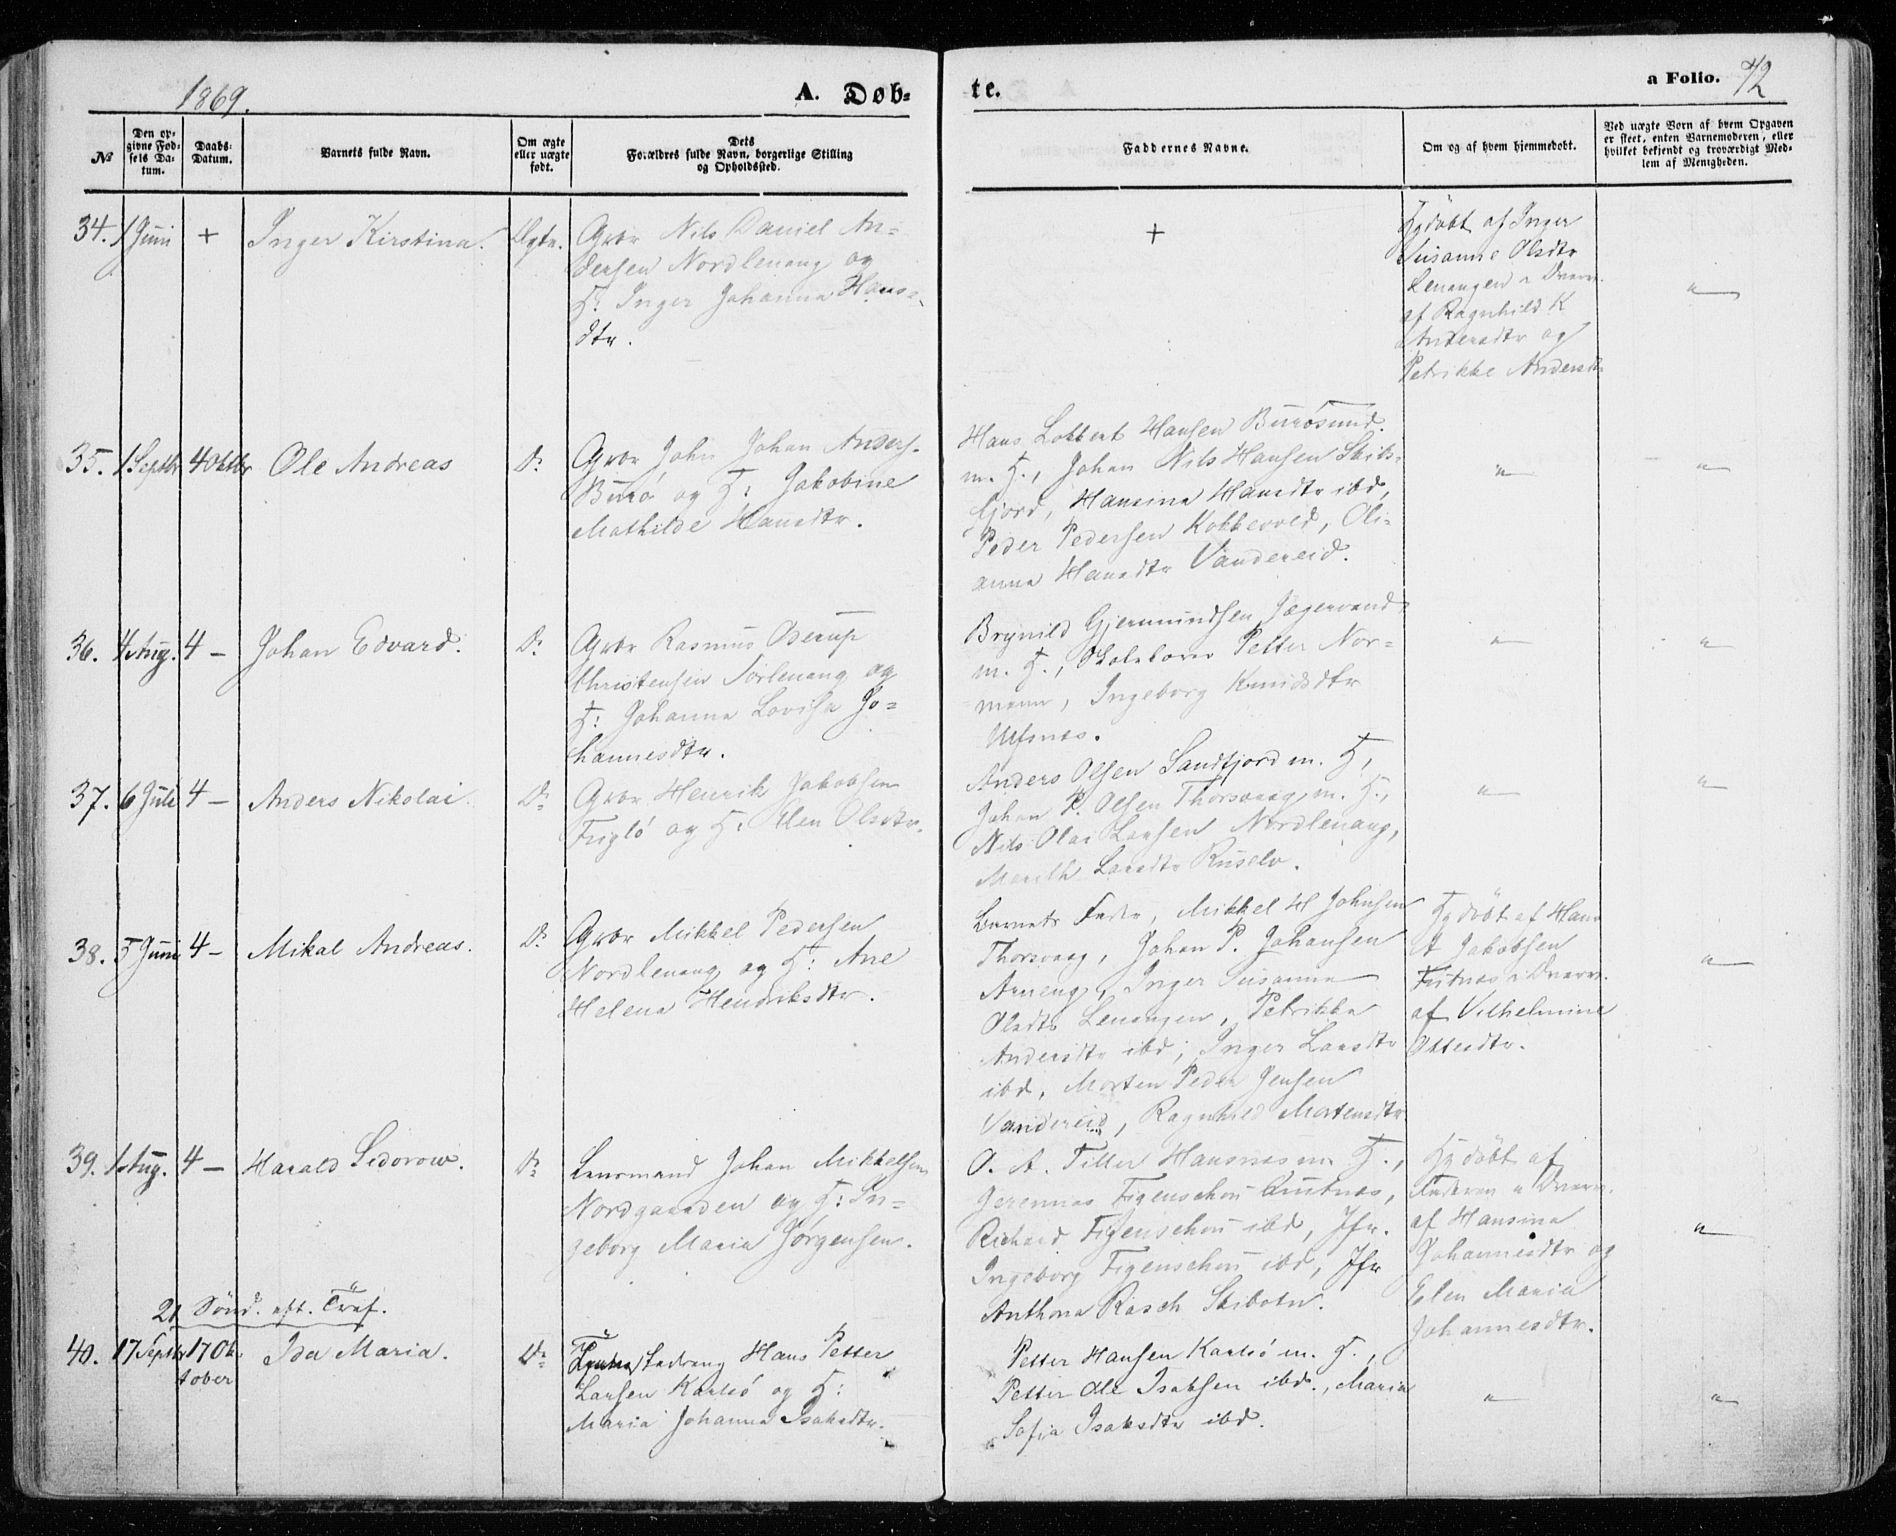 1869.
A. Døb-
te.
a Folio. 72
No
Den op-
givne Fød-
sels Da-
tum.
Daabs-
Datum.
Barnets fulde Navn.
Om ægte
eller uægte
født.
Dets
Forældres fulde Navn, borgerlige Stilling
og Opholdssted.
Faddernes Navne.
Om og af hvem hjemmedøbt.
Ved uægte Børn af hvem Opgaven
er skeet, enten Barnemoderen, eller
hvilket bekjendt og troværdigt Med-
lem af Menigheden.
34. 1 Juni + Inger Kirstina. Ægte.
Gbr Nils Daniel An-
dersen Nordlenang og
H: Inger Johanna Hans-
dtr.
+
Hjdöbt af Inger
Susanne Olsdtr
Lenangen
af Ragnhild K
Andersdtr og
Petrikke Andersdtr
"
35. 1 Septbr 4 Oktbr Ole Andreas Do
Gbr John Johan Anders.
Burö og H: Jakobine
Mathilde Hansdtr.
Hans Lobbert Hansen Burösund
m. H., Johan Nils Hansen Skibs-
fjord, Hansina Hansdtr ibd,
Peder Pedersen Kobbevold, Oli-
anna Hansdtr Vandereid.
" "
36. 4 Aug. 4 – Johan Edvard. Do
Gbr Rasmus Oderup
Christensen Sörlenang og
H: Johanna Lovisa Jo-
hannesdtr.
Brynild Gjermundsen Jægervand
m. H., Skolelærer Petter Nor-
mann, Ingeborg Knudsdtr
Ulfsnes.
" "
37. 6 Juli 4 – Anders Nikolai. Do
Gbr Henrik Jakobsen
Fuglö og H: Elen Olsdtr.
Anders Olsen Sandfjord m. H,
Johan P. Olsen Thorsvaag m. H.,
Nils Olai Larsen Nordlenang,
Mereth Larsdtr Ruselv.
" "
38. 5 Juni 4 – Mikal Andreas. Do
Gbr Mikkel Pedersen
Nordlenang og H: Ane
Helena Hendriksdtr.
Barnets Fader, Mikkel H Johnsen
Thorsvaag, Johan P. Johansen
Arneng, Inger Susanna
Olsdtr Lenangen, Petrikka
Andersdtr ibd, Inger Larsdtr
ibd, Morten Peder Jensen
Vandereid, Ragnhild Mortensdtr
Hjdöbt af Hans
A Jakobsen
af Vilhelmine
Ottesdtr.
"
39. 1 Aug. 4 – Harald Sidorow. Do
Lensmand Johan Mikkelsen
Nordgaarden og H: In-
geborg Maria Jørgensen.
O. A. Tiller Hansnes m H.,
Jeremias Figenschou
Richard Figenschou ibd, Jfr.
Ingeborg Figenschou ibd, Jfr
Anthona Rasch Skibotn.
Hjdöbt af
af Hansina
Johannesdtr og
Elen Maria
Johannesdtr.
"
21 Sønd. eft. Tref.
40. 17 Septbr 17 Ok-
tober
Ida Maria. Do
Hans Petter
Larsen Karlsö og H:
Maria Johanna Isaksdtr.
Petter Hansen Karlsö m. H.,
Petter Ole Isaksen ibd., Maria
Sofia Isaksdtr ibd.
" "